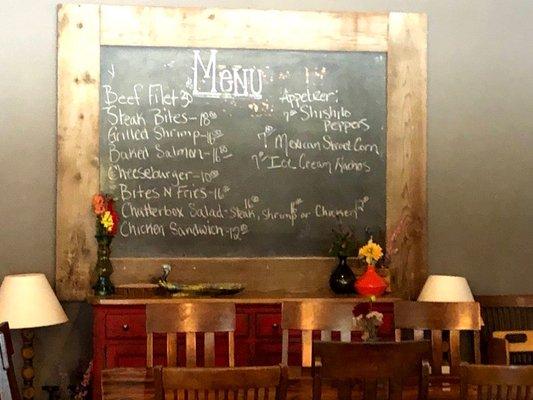 Menu
Beef Filet 30
Steak Bites - 18
Grilled Shrimp - 16
Baked Salmon - 16
Cheeseburger - 10
Bites N Fries - 16
Chatterbox Salad - Steak, 16 Shrimp 16 or Chicken 12
Chicken Sandwich - 12
Appetizer:
7 Shishito
Peppers
7 Mexican Street Corn
7 Ice Cream Nachos